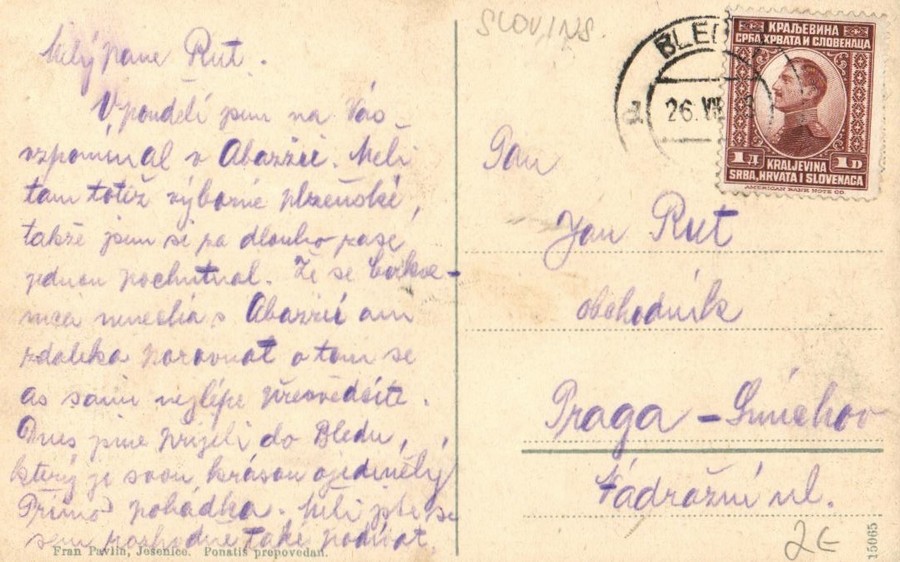 Milý pane Rut.
V pondělí jsem na Vás
vzpomínal v Abazzii. Měli
tam totiž výborné plzeňské,
takže jsem si za dlouho zase
jednou pochutnal. Že se Cirkve-
nica nenechá s Abazzií ani
zdaleka porovnat o tom se
as sami nejlépe přesvědčíte.
Dnes jsme přijeli do Bledu,
který je svou krásou ojedinělý
Přímo pohádka. Měli jste se
sem rozhodně také podívat.
Fran Pavlin, Jesenice. Ponatis prepovedan.
SLOVINS.
BLED
26. VII
КРАЉЕВИНА
СРБА, ХРВАТА И СЛОВЕНАЦА
1 Д 1 D
KRALJEVINA
SRBA, HRVATA I SLOVENACA
AMERICAN BANK NOTE CO.
Pan
Jan Rut
obchodník
Praga - Smíchov
Nádražní ul.
2€
15065